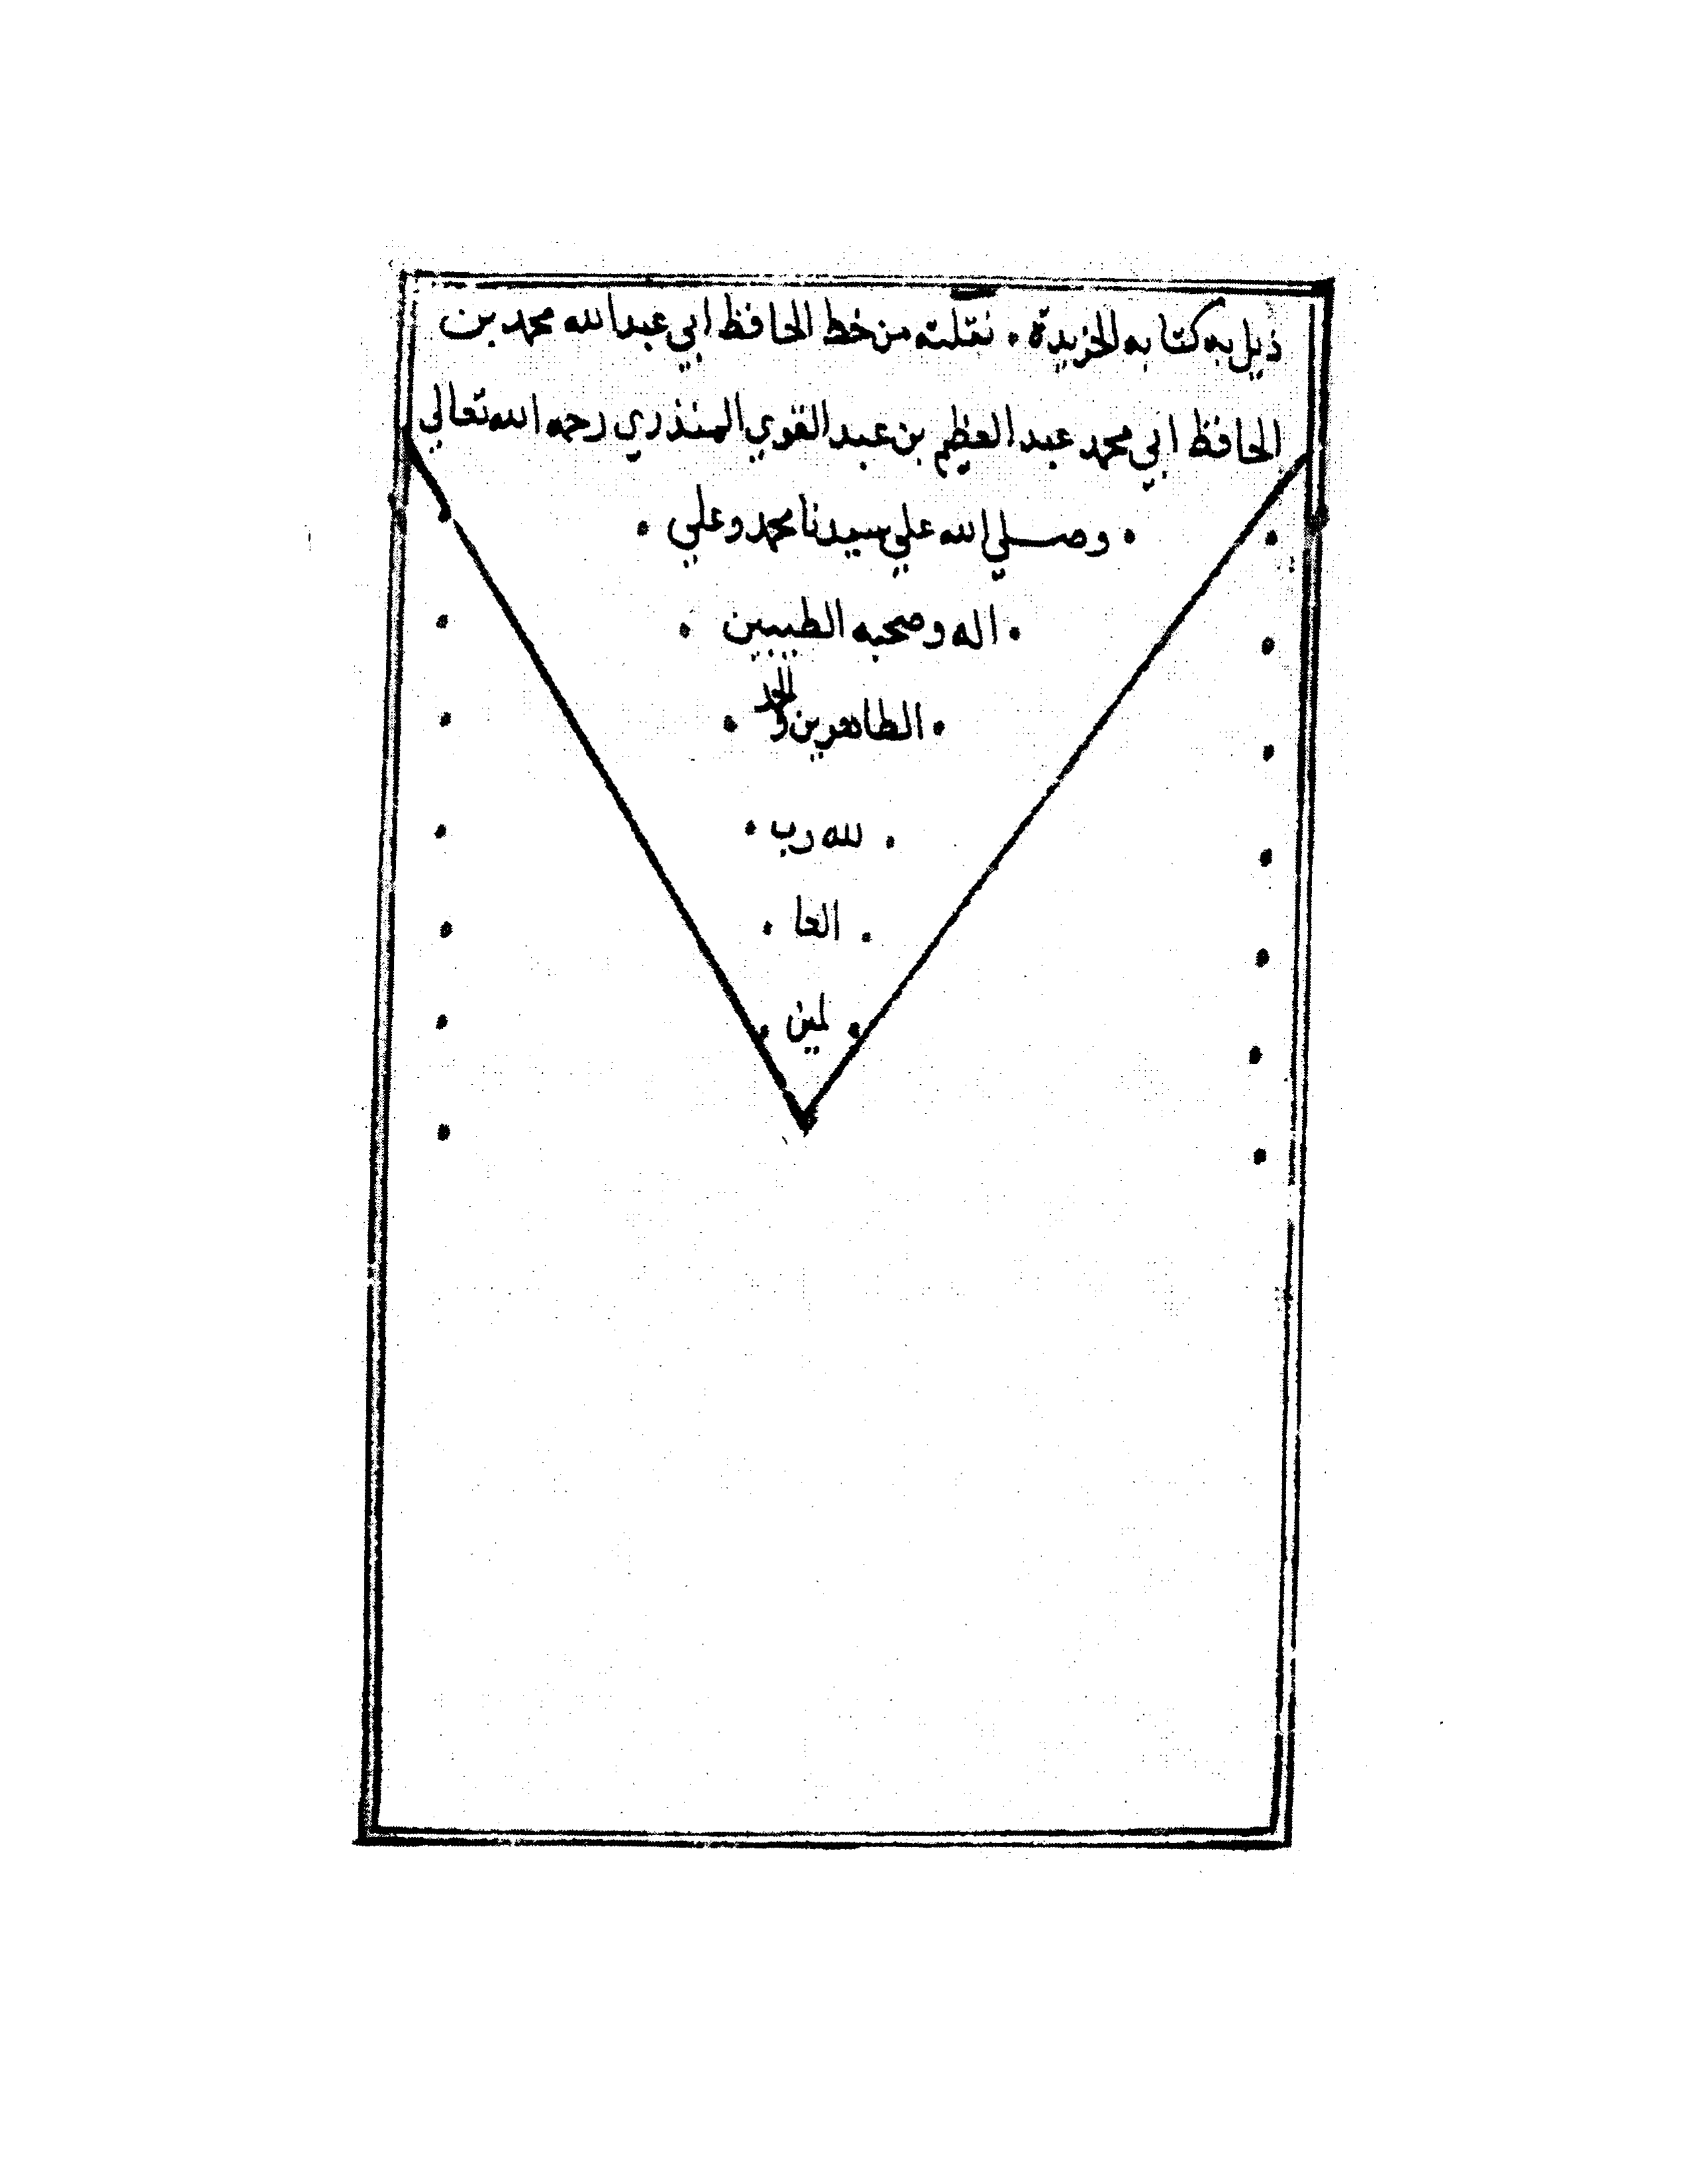 ذيل به كتابه الخريدة . نقلته من خط الحافظ ابي عبد الله محمد بن
الحافظ ابي محمد عبد العظيم بن عبد القوي المنذري رحمه الله تعالي
. وصلي الله علي سيدنا محمد وعلي .
. اله وصحبه الطيبين .
. الطاهرين والحمد .
. لله رب .
. العا .
. لمين .